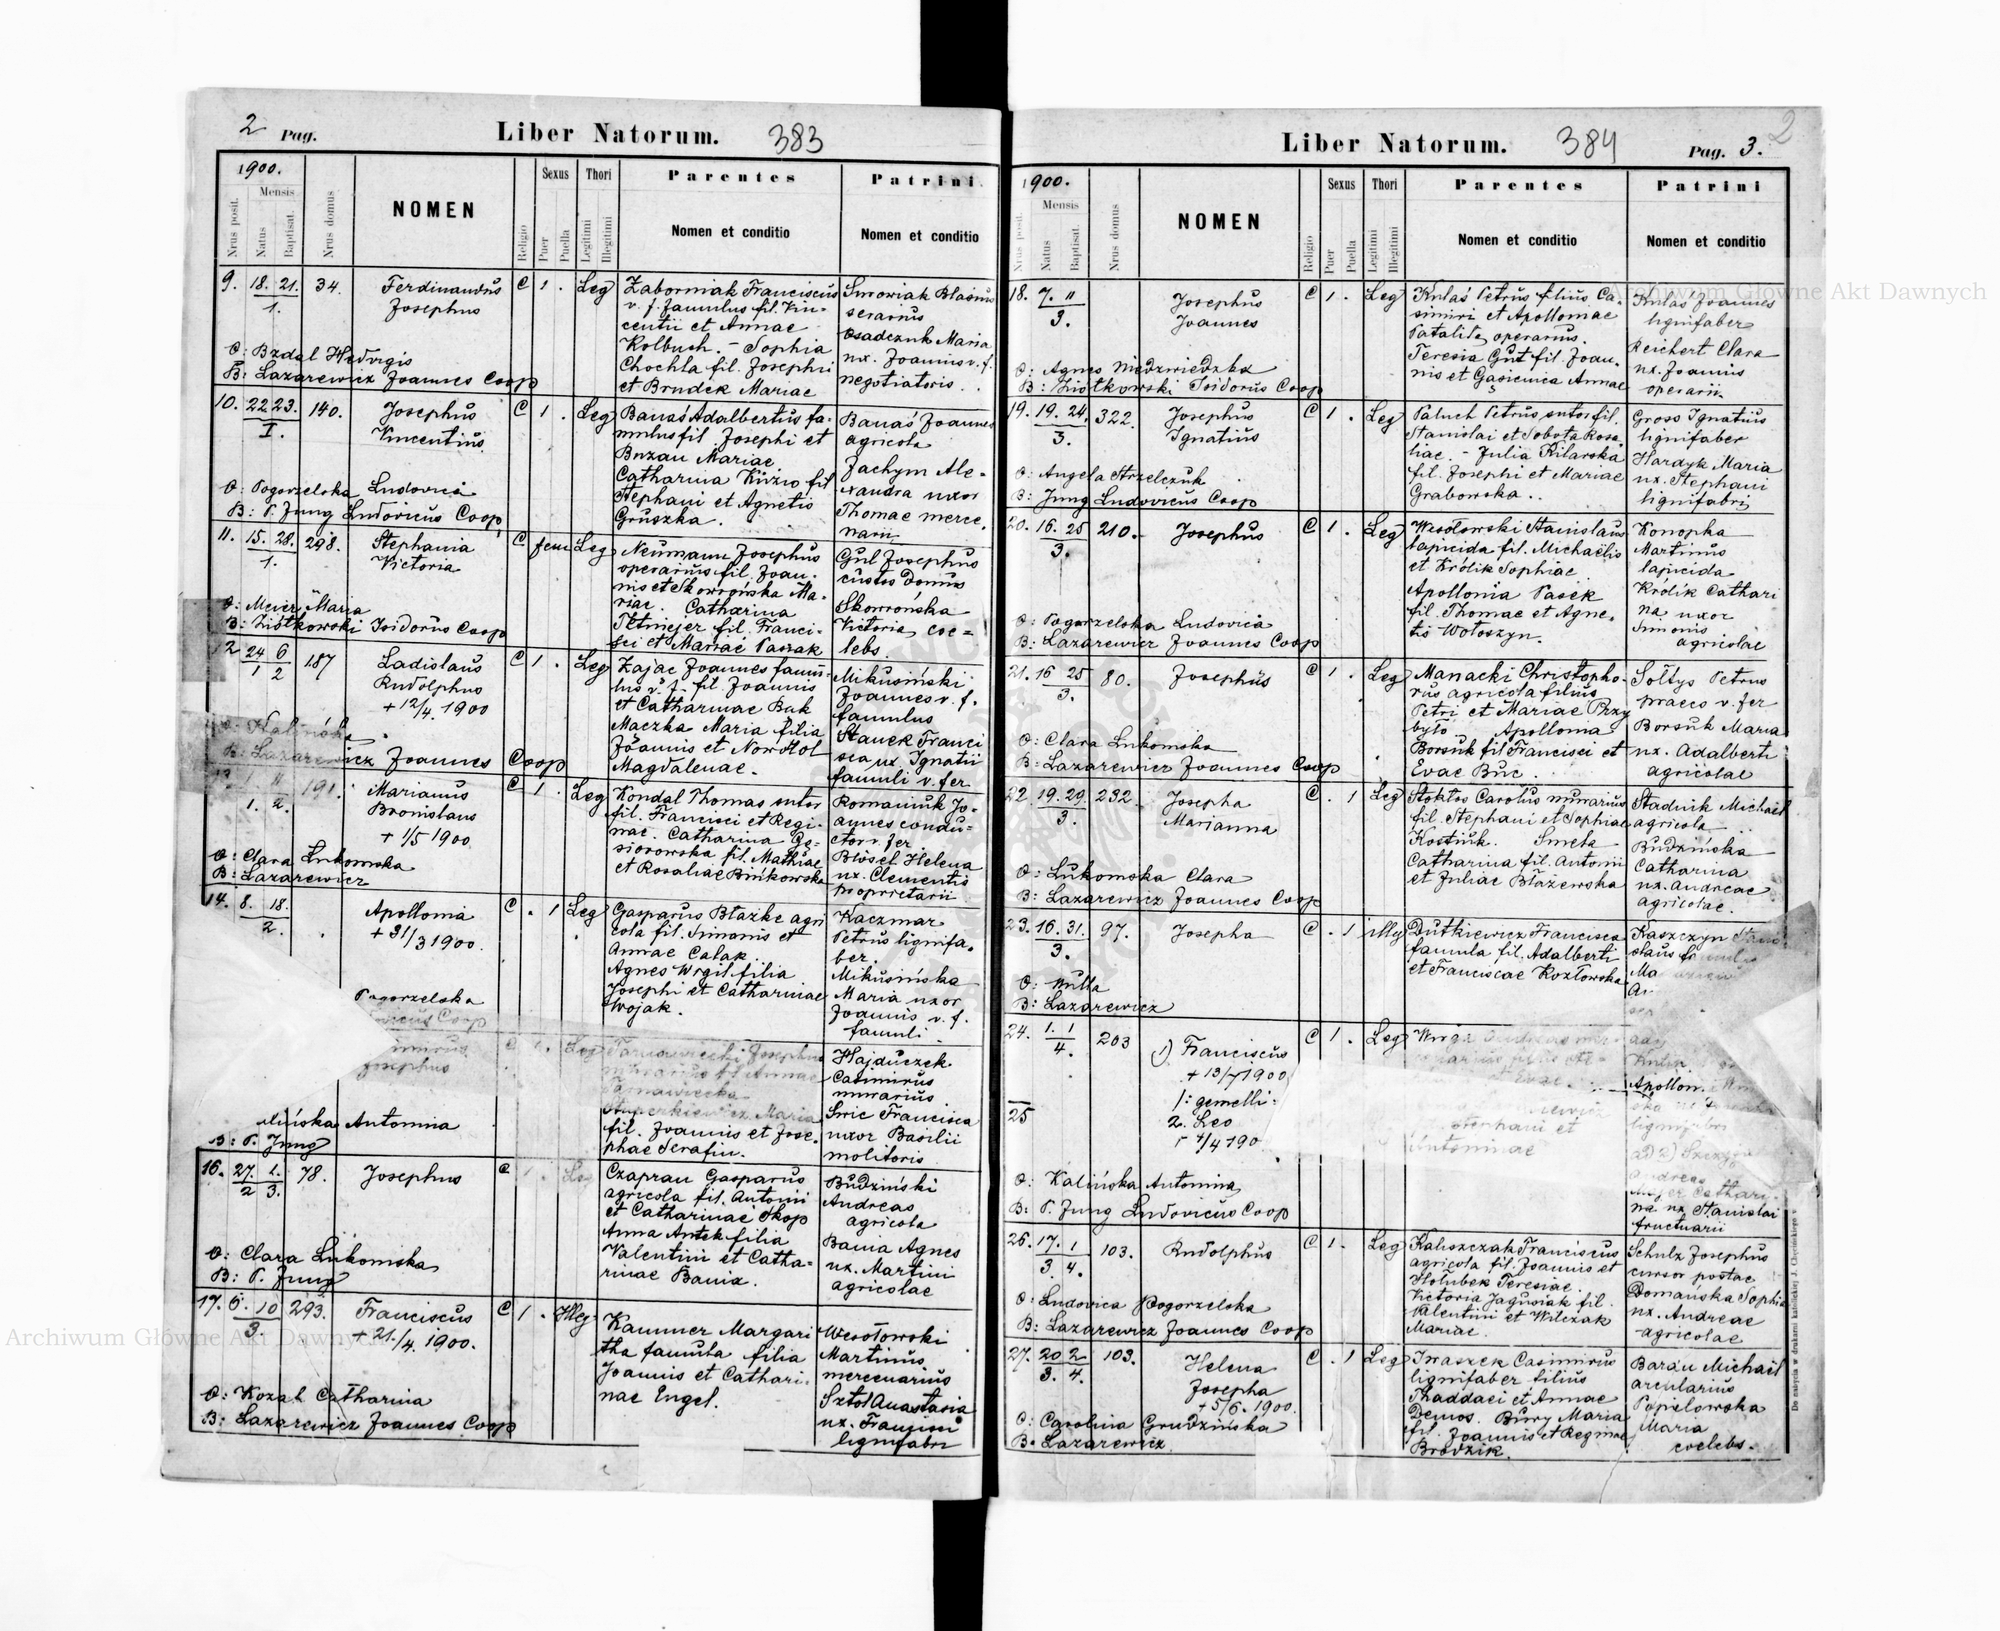 2 Pag.
Liber Natorum. 383
1900.
Nrus posit.
Mensis
Natus
Baptisat.
Nrus domus
NOMEN
Religio
Sexus
Puer
Puella
Thori
Legitimi
Illegitimi
Parentes
Nomen et conditio
Patrini
Nomen et conditio
9. 18. 21. 34. Ferdinandus C 1. Leg
1. Josephus
Zaborniak Franciscus
v. f. famulus fil. Vin-
centii et Annae
Kolbuch. - Sophia
Chochla fil. Josephi
et Brudek Mariae
Smowiak Blasius
serarius
Osadczuk Maria
ux. Joannis v. f.
negotiatoris.
O: Bzdal Hedvigis
B: Lazarewicz Joannes Coop
10. 22 23. 140. Josephus C 1. Leg
I. Vincentius
Banaś Adalbertus fa-
mulus fil. Josephi et
Buzau Mariae
Catharina Kirzio fil
Stephani et Agnetis
Gruszka.
Banaś Joannes
agricola
Jachym Ale-
xandra uxor
Thomae merce.
narii
O: Pogorzelska Ludovica
B: P. Jung Ludovicus Coop
11. 15. 28. 298. Stephania C fem Leg
1. Victoria
Neumann Josephus
operarius fil. Joan-
nis et Skowrońska Ma-
riae. Catharina
Petmejer fil. Franci-
sci et Mariae Passak
Gul Josephus
custos Domus
Skowrońska
Victoria coe=
lebs.
O: Meier Maria
B: Ziółkowski Isidorus Coop
12 24 6 187 Ladislaus C 1. Leg
1 2 Rudolphus
+ 12/4. 1900
Zając Joannes famu-
lus v. f. fil. Joannis
et Catharinae Bak
Maczka Maria filia
Joannis et Nowotol
Magdalenae.
Mikusiński
Joannes v. f.
famulus
Stanek Franci
sca ux. Ignatii
famuli v. fer
O: Kalińska
B: Lazarewicz Joannes Coop
11 191. Marianus C 1. Leg
1. 2. Bronislaus
+ 1/5 1900
Kondal Thomas sutor
fil. Francisci et Regi-
nae. Catharina Gę-
siorowska fil. Mathiae
et Rosaliae Bińkowska
Romaniuk Jo-
annes condu=
ctor v. fer.
Blösel Helena
ux. Clementis
proprietarii
O: Clara Lukomska
B: Lazarewicz
14. 8. 18. Apollonia C . 1 Leg
2. + 31/3 1900.
Gasparus Błażke agri
cola fil. Simonis et
Annae Całak.
Agnes Wrgil filia
Josephi et Catharinae
Wojak.
Kaczmar
Petrus lignifa-
ber.
Mikusińska
Maria uxor
Joannis v. f.
famuli
Pogorzelska
Coop
Josephus
Josephus
fil. Joannis et Jose-
phae Serafin.
Hajduczek
Casimirus
murarius
Swic Francisca
uxor Basilii
molitoris
Antonina
B: P. Jung
16. 27. 1. 78. Josephus C 1. Leg
2 3.
Czaprau Gasparus
agricola fil. Antonii
et Catharinae Skop
Anna Antek filia
Valentini et Catha-
rinae Bania.
Budziński
Andreas
agricola
Bania Agnes
ux. Martini
agricolae
O: Clara Lukomska
B: P. Jung
17. 6. 10 293. Franciscus C 1 . Illeg
3. + 21./4. 1900.
Kammer Margari
tha famula filia
Joannis et Cathari-
nae Engel.
Wesołowski
Martinus
mercenarius
Sztol Anastasia
ux. Francisci
lignifabri
O: Kozak Catharina
B: Lazarewicz Joannes Coop
Liber Natorum. 384 Pag. 3. 2
1900.
Nrus posit.
Mensis
Natus
Baptisat.
Nrus domus
NOMEN
Religio
Sexus
Puer
Puella
Thori
Legitimi
Illegitimi
Parentes
Nomen et conditio
Patrini
Nomen et conditio
18. 7. 11 Josephus C 1. Leg
3. Joannes
Kulaś Petrus filius Ca-
simiri et Apolloniae
Patalita operarius.
Teresia Gut fil. Joan-
nis et Gąsienica Annae
Kulaś Joannes
lignifaber
Reichert Clara
ux. Joannis
operarii
O: Agnes Niedzwiedzka
B: Ziółkowski Isidorus Coop
19. 19. 24. 322. Josephus C 1. Leg
3. Ignatius
Paluch Petrus sutor fil.
Stanislai et Sobota Rosa-
liae. - Julia Kilarska
fil. Josephi et Mariae
Grabowska..
Gross Ignatius
lignifaber
Hardyk Maria
ux. Stephani
lignifabri
O: Angela Strzelczuk
B: Jung Ludovicus Coop
20. 16. 25 210. Josephus C 1. Leg
3.
Wesołowski Stanislaus
lapicida fil. Michaelis
et Królik Sophiae
Apollonia Pasek
fil. Thomae et Agne-
tis Wołoszyn.
Konopka
Martinus
lapicida
Królik Cathari
na uxor
Simonis
agricolae
O: Pogorzelska Ludovica
B: Lazarewicz Joannes Coop
21. 16 25 80. Josephus C 1. Leg
3.
Manacki Christopho-
rus agricola filius
Petri et Mariae Przy
było. Apollonia
Borsuk fil Francisci et
Evae Buc.
Sołtys Petrus
praeco v. fer
Borsuk Maria
ux. Adalberti
agricolae
O: Clara Lukomska
B: Lazarewicz Joannes Coop
22. 19. 29. 232. Josepha C . 1 Leg
3. Marianna
Stoktos Carolus murarius
fil. Stephani et Sophiae
Kostiuk. Smeta
Catharina fil. Antonii
et Juliae Błażewska
Stadnik Michael
agricola
Budzińska
Catharina
ux. Andreae
agricolae.
O: Lukomska Clara
B: Lazarewicz Joannes Coop
23. 16. 31. 97. Josepha C . 1 illeg
3.
Dutkiewicz Francisca
famula fil. Adalberti
et Franciscae Kozłowska
Kaszczyn
O: Witta
B: Lazarewicz
24. 1. 1 203 1) Franciscus C 1. Leg
4. + 13/7 1900
1: gemelli:
25 2. Leo
4/4 190
Stephani et
Antoninae
Apollon.
lignifabri
ad 2)
Andreas
Mejer Cathari-
na ux Stanislai
fructuarii
O: Kalińska Antonina
B: P. Jung Ludovicus Coop
26. 17. 1 103. Rudolphus C 1. Leg
3 4.
Kaluszczak Franciscus
agricola fil. Joannis et
Holubek Teresiae.
Victoria Jagusiak fil.
Valentini et Wilczak
Mariae.
Schulz Josephus
cursor postae
Domańska Sophia
ux. Andreae
agricolae
O: Ludovica Pogorzelska
B: Lazarewicz Joannes Coop
27. 20 2 103. Helena C . 1 Leg
3. 4. Josepha
+ 5/6. 1900.
Iwaszek Casimirus
lignifaber filius
Thaddaei et Annae
Demos. Bury Maria
fil. Joannis et Reginae
Brodzik.
Bardu Michael
arcularius
Popelowska
Maria
coelebs.
O: Carolina Grudzińska
B. Lazarewicz
Archiwum Główne Akt Dawnych
Archiwum Główne Akt Dawnych